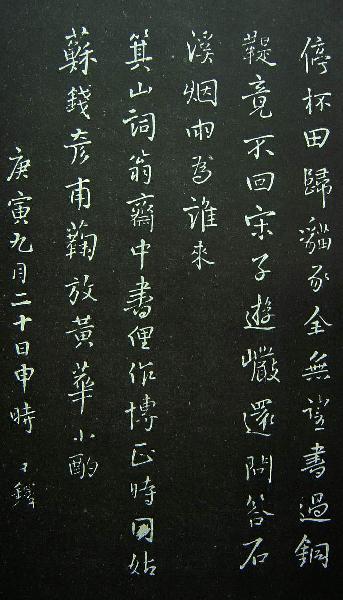 停杯田歸貓豕全無證書過銅
鞮竟不回宋子遊巖還問答石
溪烟雨為誰來
箕山詞翁齋中書俚作博正時同姑
蘇錢彥甫鞠放黃華小酌
庚寅九月二十日申時